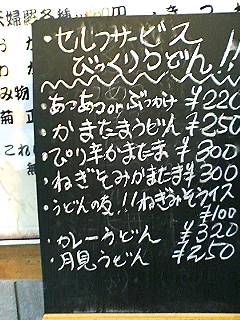 ・セルフサービス
びっくりうどん!!
・あつあつorぶっかけ ¥220
・かまたまうどん ¥250
・ぴり辛かまたま ¥300
・ねぎそみかまたま ¥300
・うどんの友!!ねぎみそライス
¥100
・カレーうどん ¥320
・月見うどん ¥250